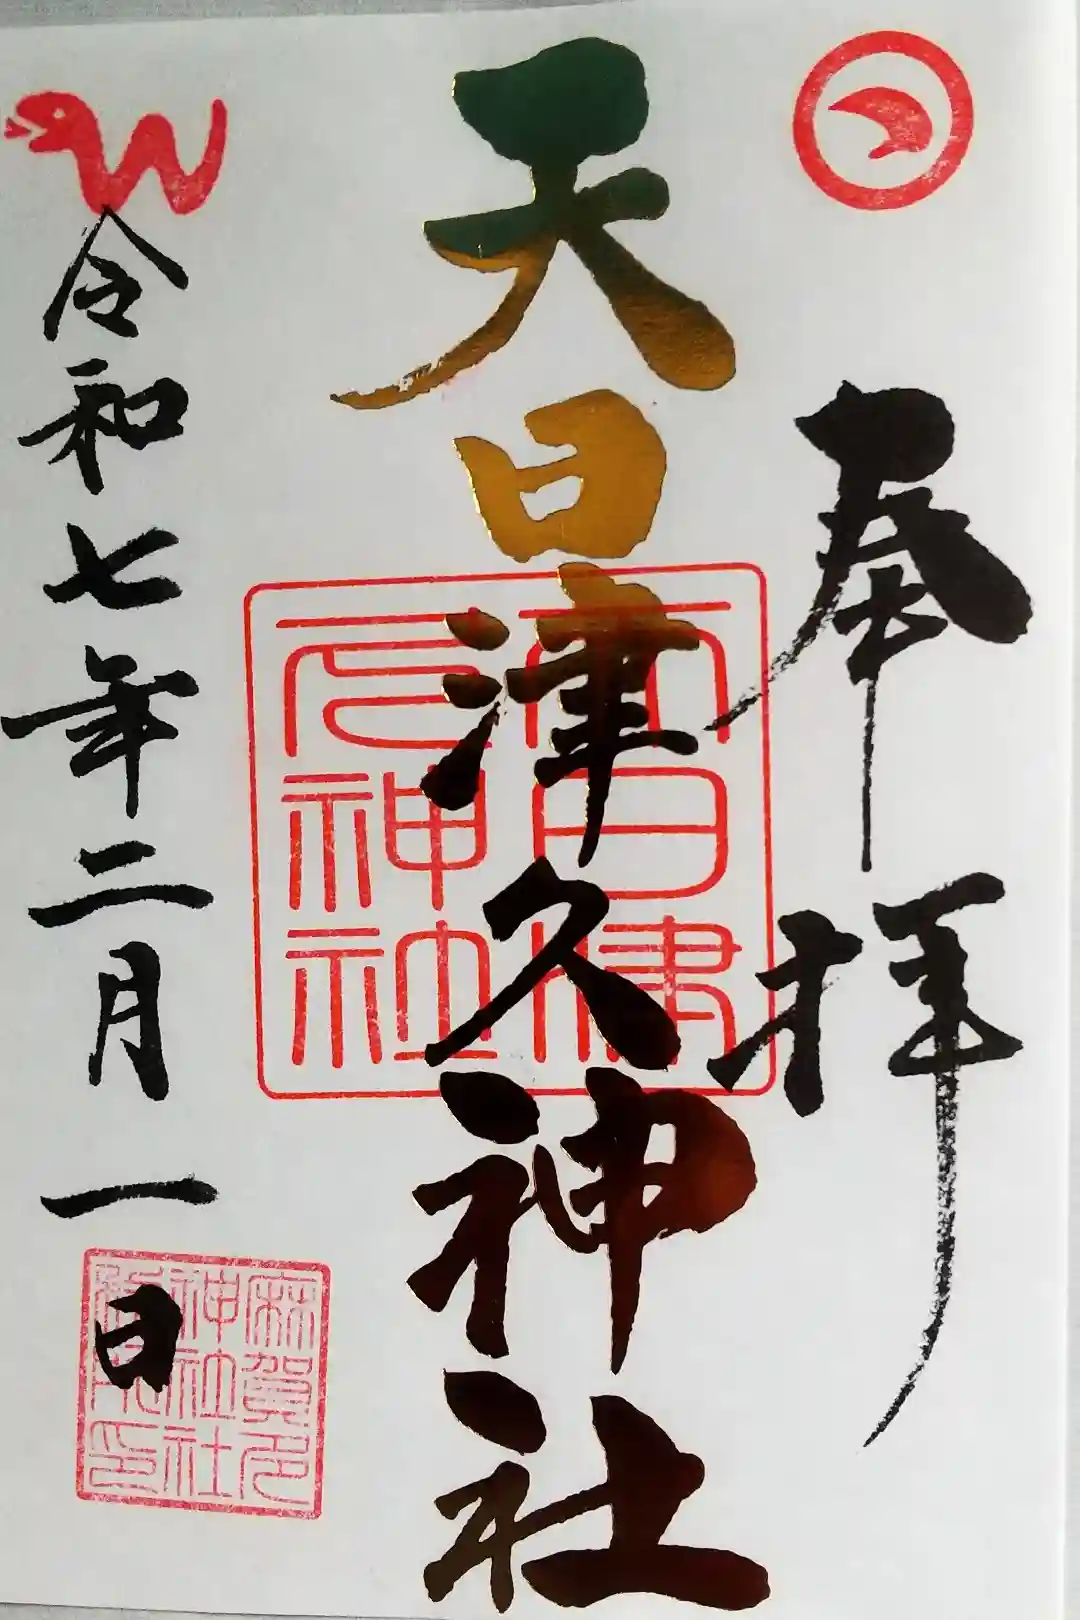 奉拝
天日津久神社
天日津
久神社
麻賀多
神社社
務所印
令和七年二月一日